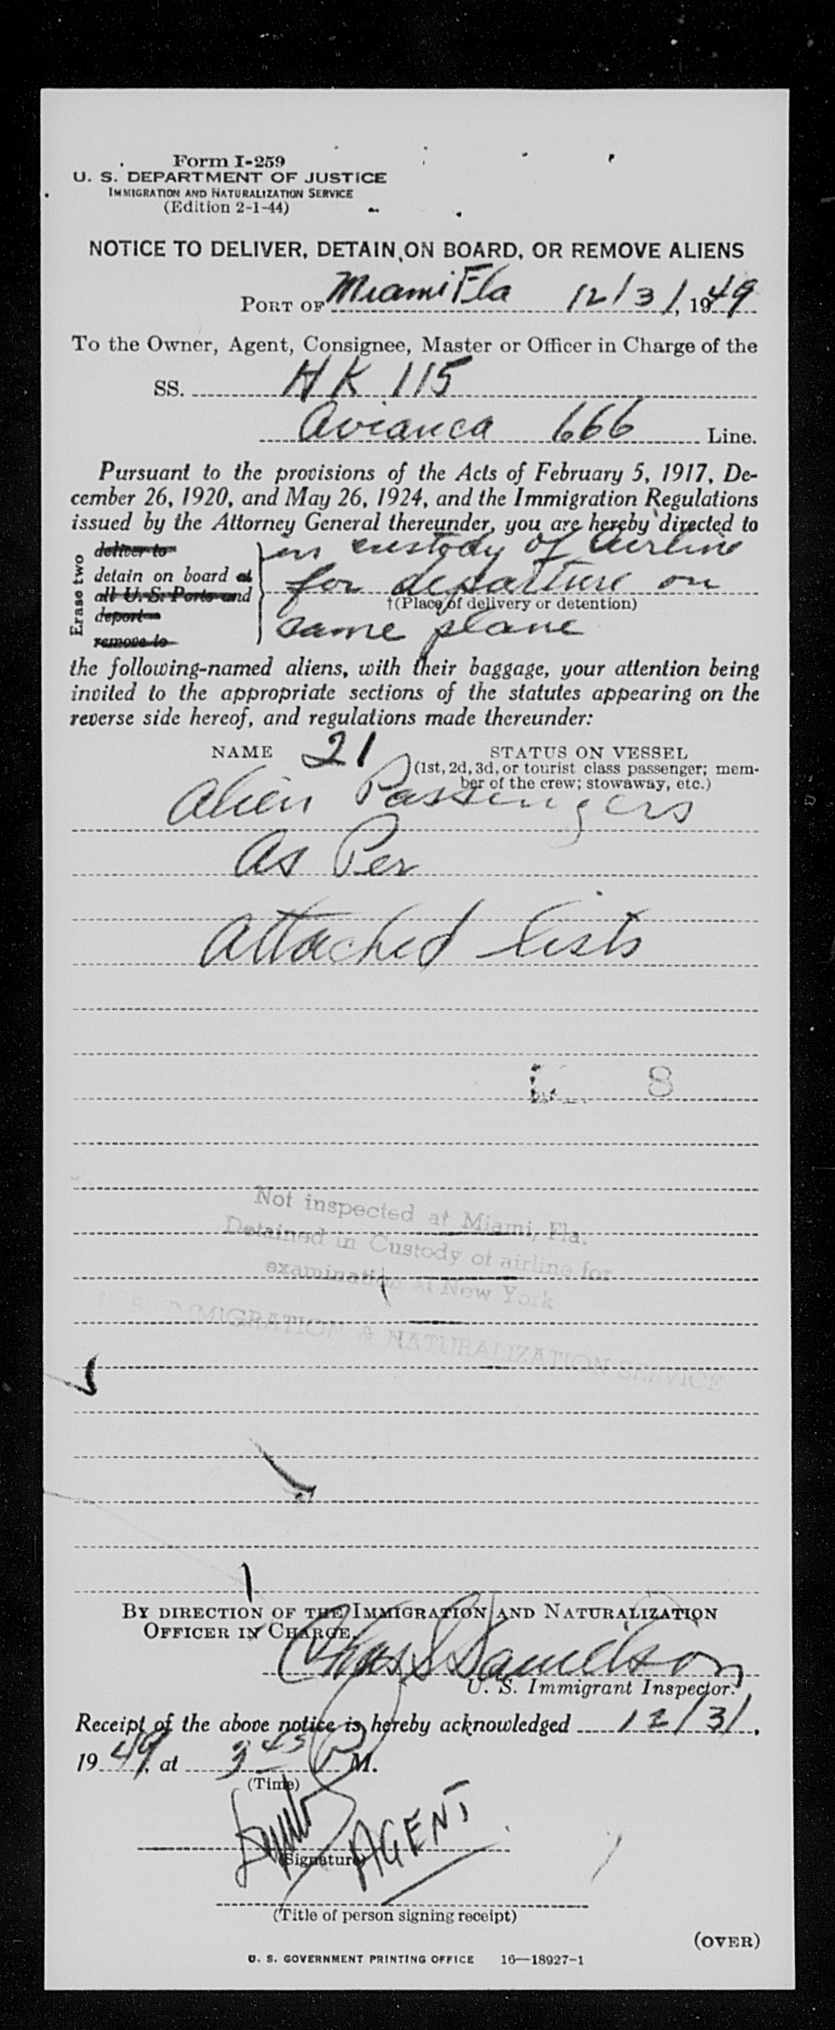 Form I-259
U. S. DEPARTMENT OF JUSTICE
IMMIGRATION AND NATURALIZATION SERVICE
(Edition 2-1-44)
NOTICE TO DELIVER, DETAIN ON BOARD, OR REMOVE ALIENS
PORT OF Miami Fla 12/31, 1949
To the Owner, Agent, Consignee, Master or Officer in Charge of the
SS. HK 115
Avianca 666 Line.
Pursuant to the provisions of the Acts of February 5, 1917, De-
cember 26, 1920, and May 26, 1924, and the Immigration Regulations
issued by the Attorney General thereunder, you are hereby directed to
Erase two
deliver to
detain on board at
all U. S. Ports and
deport
remove to
in custody of airline
for departure on
†(Place of delivery or detention)
same plane
the following-named aliens, with their baggage, your attention being
invited to the appropriate sections of the statutes appearing on the
reverse side hereof, and regulations made thereunder:
NAME 21 STATUS ON VESSEL
(1st, 2d, 3d, or tourist class passenger; mem-
ber of the crew; stowaway, etc.)
Alien Passengers
As Per
attached lists
8
Not inspected at Miami, Fla.
Detained in Custody of airline for
examination at New York
U. S. IMMIGRATION & NATURALIZATION SERVICE
BY DIRECTION OF THE IMMIGRATION AND NATURALIZATION
OFFICER IN CHARGE,
Chas S Danielson
U. S. Immigrant Inspector.
Receipt of the above notice is hereby acknowledged 12/31,
1949, at 3 45 P M.
(Time)
AGENT
(Signature)
(Title of person signing receipt)
(OVER)
U. S. GOVERNMENT PRINTING OFFICE 16—18927-1